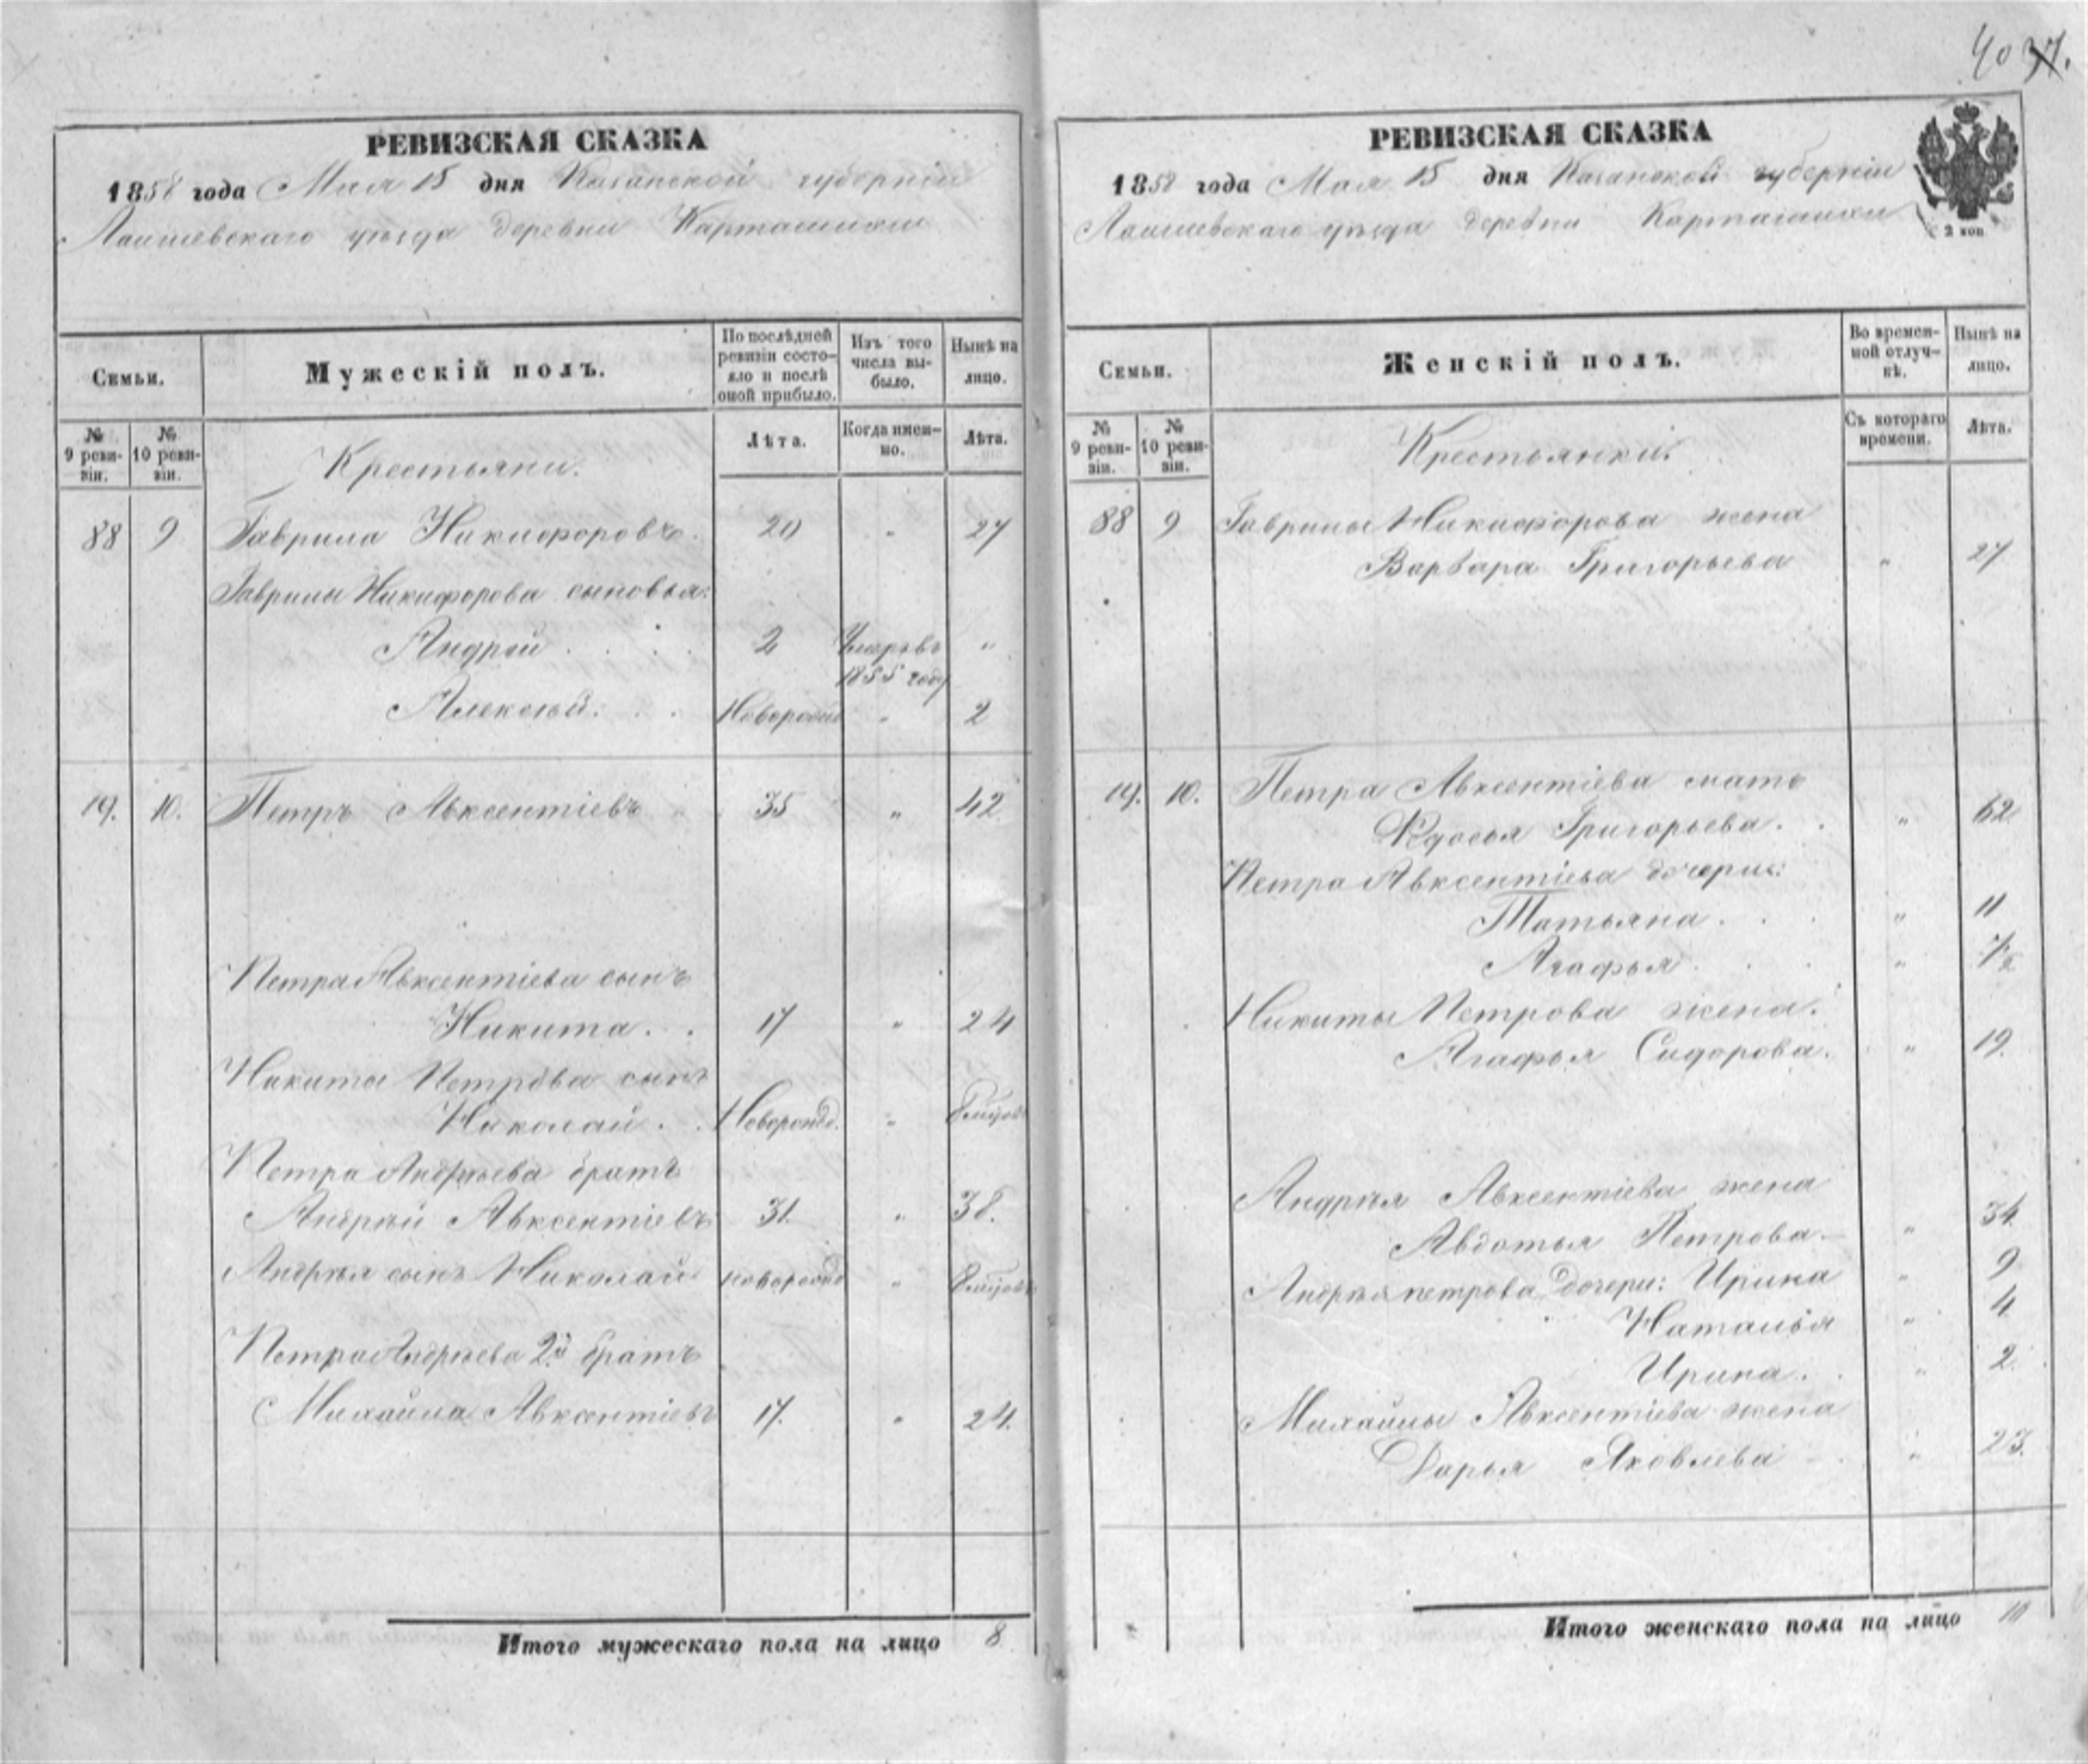 40 37.
РЕВИЗСКАЯ СКАЗКА
1858 года Мая 15 дня Казанской губернiи
Лаишевскаго уѣзда деревни Карташихи
Семьи.
Мужескiй полъ.
По послѣдней ревизiи состояло и послѣ оной прибыло.
Изъ того числа выбыло.
Нынѣ на лицо.
№ 9 ревизiи.
№ 10 ревизiи.
Лѣта.
Когда именно.
Лѣта.
Крестьяни.
88 9 Гаврила Никифоровъ. 20 „ 27
Гаврилы Никифорова сыновья:
Андрей 2 Умеръ въ 1855 году „
Алексѣй Новорожд „ 2
19. 10. Петръ Авксентiевъ 35 „ 42
Петра Авксентiева сынъ
Никита 17 „ 24
Никиты Петрова сынъ
Николай Новорожд. „
Петра Андрѣева братъ
Андрѣй Авксентiевъ 31. „ 38.
Андрѣя сынъ Николай новорожд „
Петра Андрѣева 2й братъ
Михайла Авксентiевъ 17. „ 24.
Итого мужескаго пола на лицо 8
РЕВИЗСКАЯ СКАЗКА
1858 года Мая 15 дня Казанской губернiи
Лаишевскаго уѣзда деревни Карташихи
2 коп
Семьи.
Женскiй полъ.
Во временной отлучкѣ.
Нынѣ на лицо.
№ 9 ревизiи.
№ 10 ревизiи.
Съ котораго времени.
Лѣта.
Крестьянки.
88 9 Гаврилы Никифорова жена
Варвара Григорьева „ 27
19. 10. Петра Авксентiева мать
Ѳедосья Григорьева. „ 62
Петра Авксентiева дочери:
Татьяна „ 11
Агафья „
Никиты Петрова жена.
Агафья Сидорова. „ 19.
Андрѣя Авксентiева жена
Авдотья Петрова „ 34.
Андрѣя петрова дочери: Ирина „ 9
Наталья „ 4
Ирина. „ 2.
Михайлы Авксентiева жена
Дарья Яковлева „ 23.
Итого женскаго пола на лицо 10